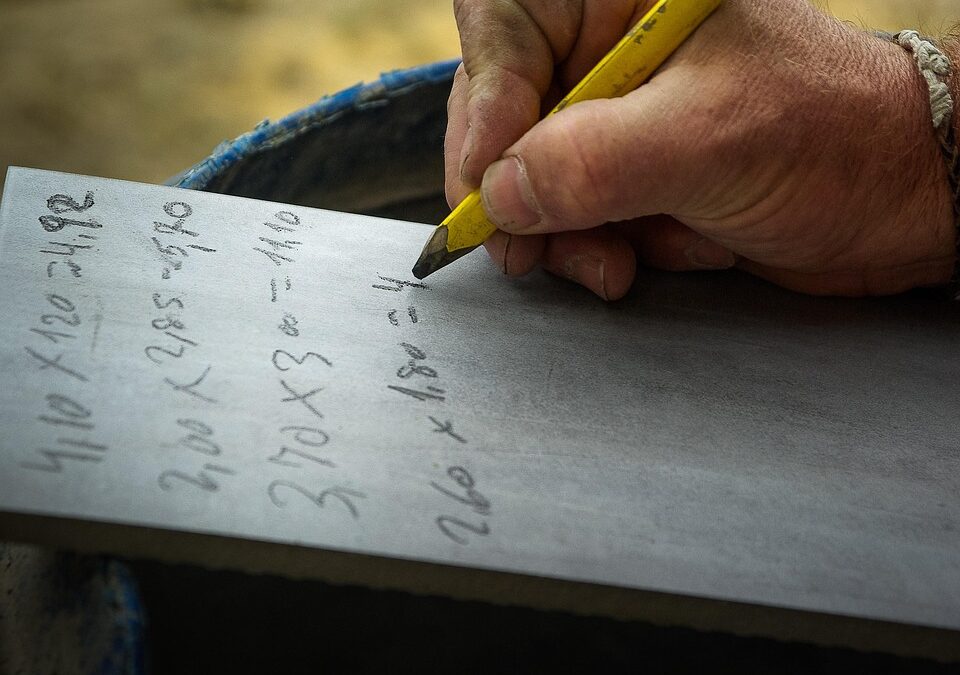 4,10 x 120 = 4,92
2,00 x 2,85 = 5,70
3,70 x 3,00 = 11,10
2,60 x 1,80 = 4